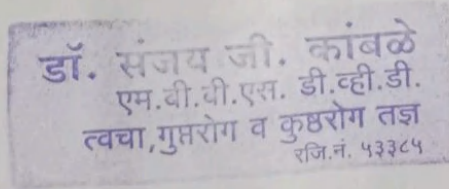 डॉ. संजय जी. कांबळे
एम.बी.बी.एस. डी.व्ही.डी.
त्वचा,गुप्तरोग व कुष्ठरोग तज्ञ
रजि.नं. ५३३८५